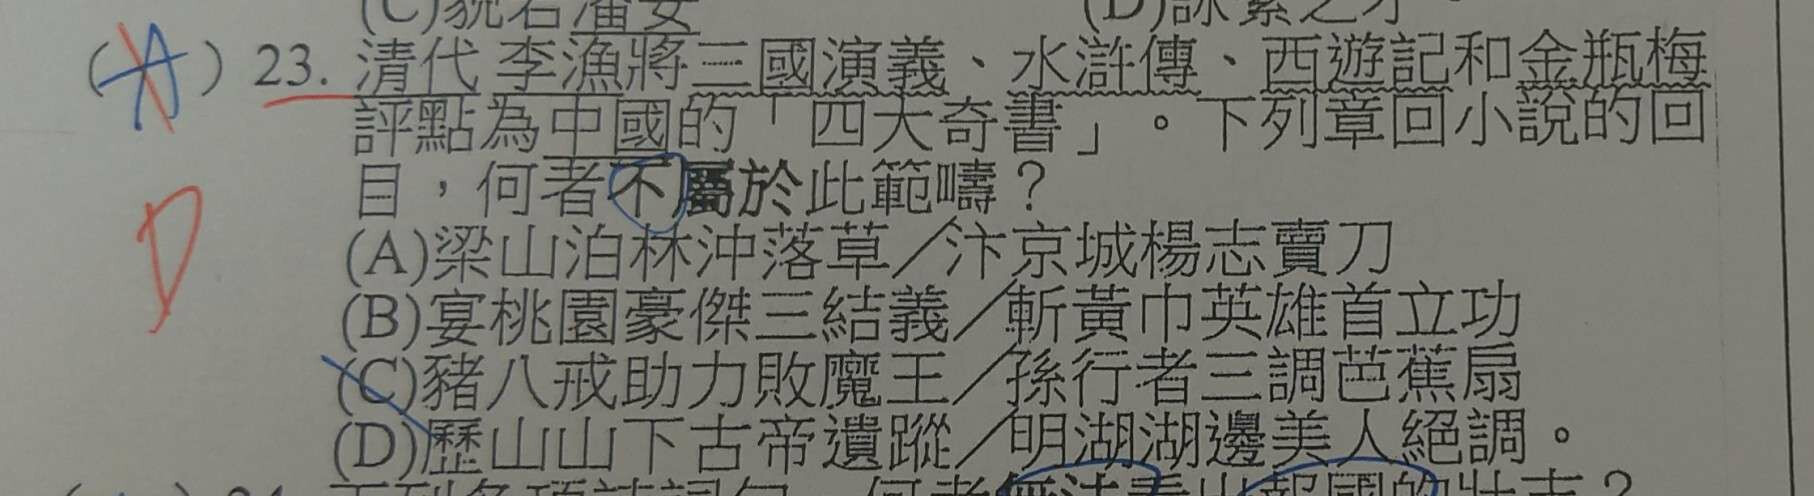 (C)貌若潘安 (D)詠絮之才。
(A) 23. 清代 李漁將三國演義、水滸傳、西遊記和金瓶梅
評點為中國的「四大奇書」。下列章回小說的回
目，何者不屬於此範疇？
D
(A)梁山泊林沖落草／汴京城楊志賣刀
(B)宴桃園豪傑三結義／斬黃巾英雄首立功
(C)豬八戒助力敗魔王／孫行者三調芭蕉扇
(D)歷山山下古帝遺蹤／明湖湖邊美人絕調。
24. 下列各項詩詞句，何者無法看出報國的壯志？